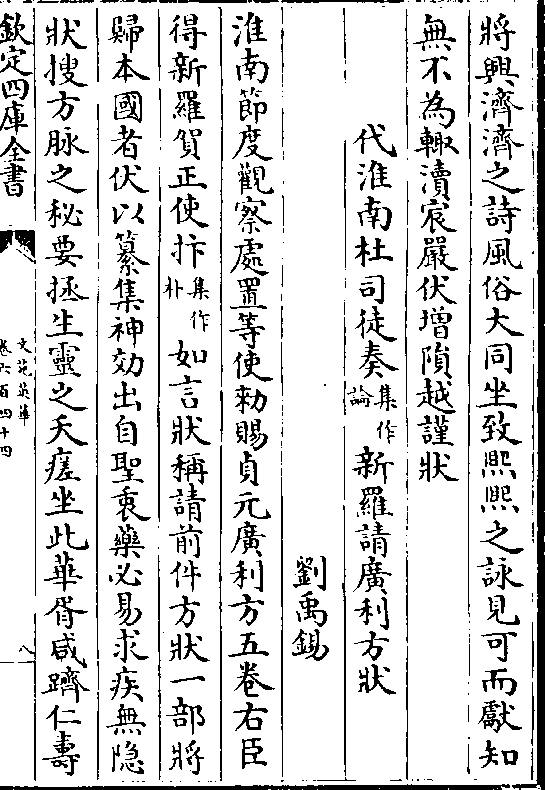 將興濟濟之詩風俗大同坐致熙熙之詠見可而獻知
無不為輙瀆宸嚴伏增隕越謹狀
代淮南杜司徒奏集作論新羅請廣利方狀
劉禹錫
淮南節度觀察處置等使勅賜貞元廣利方五卷右臣
得新羅賀正使抃集作朴如言狀稱請前件方狀一部將
歸本國者伏以纂集神効出自聖衷藥必易求疾無隐
狀搜方脉之秘要拯生靈之夭瘥坐此華胥咸躋仁壽
欽定四庫全書
文苑英華
卷六百四十四
八